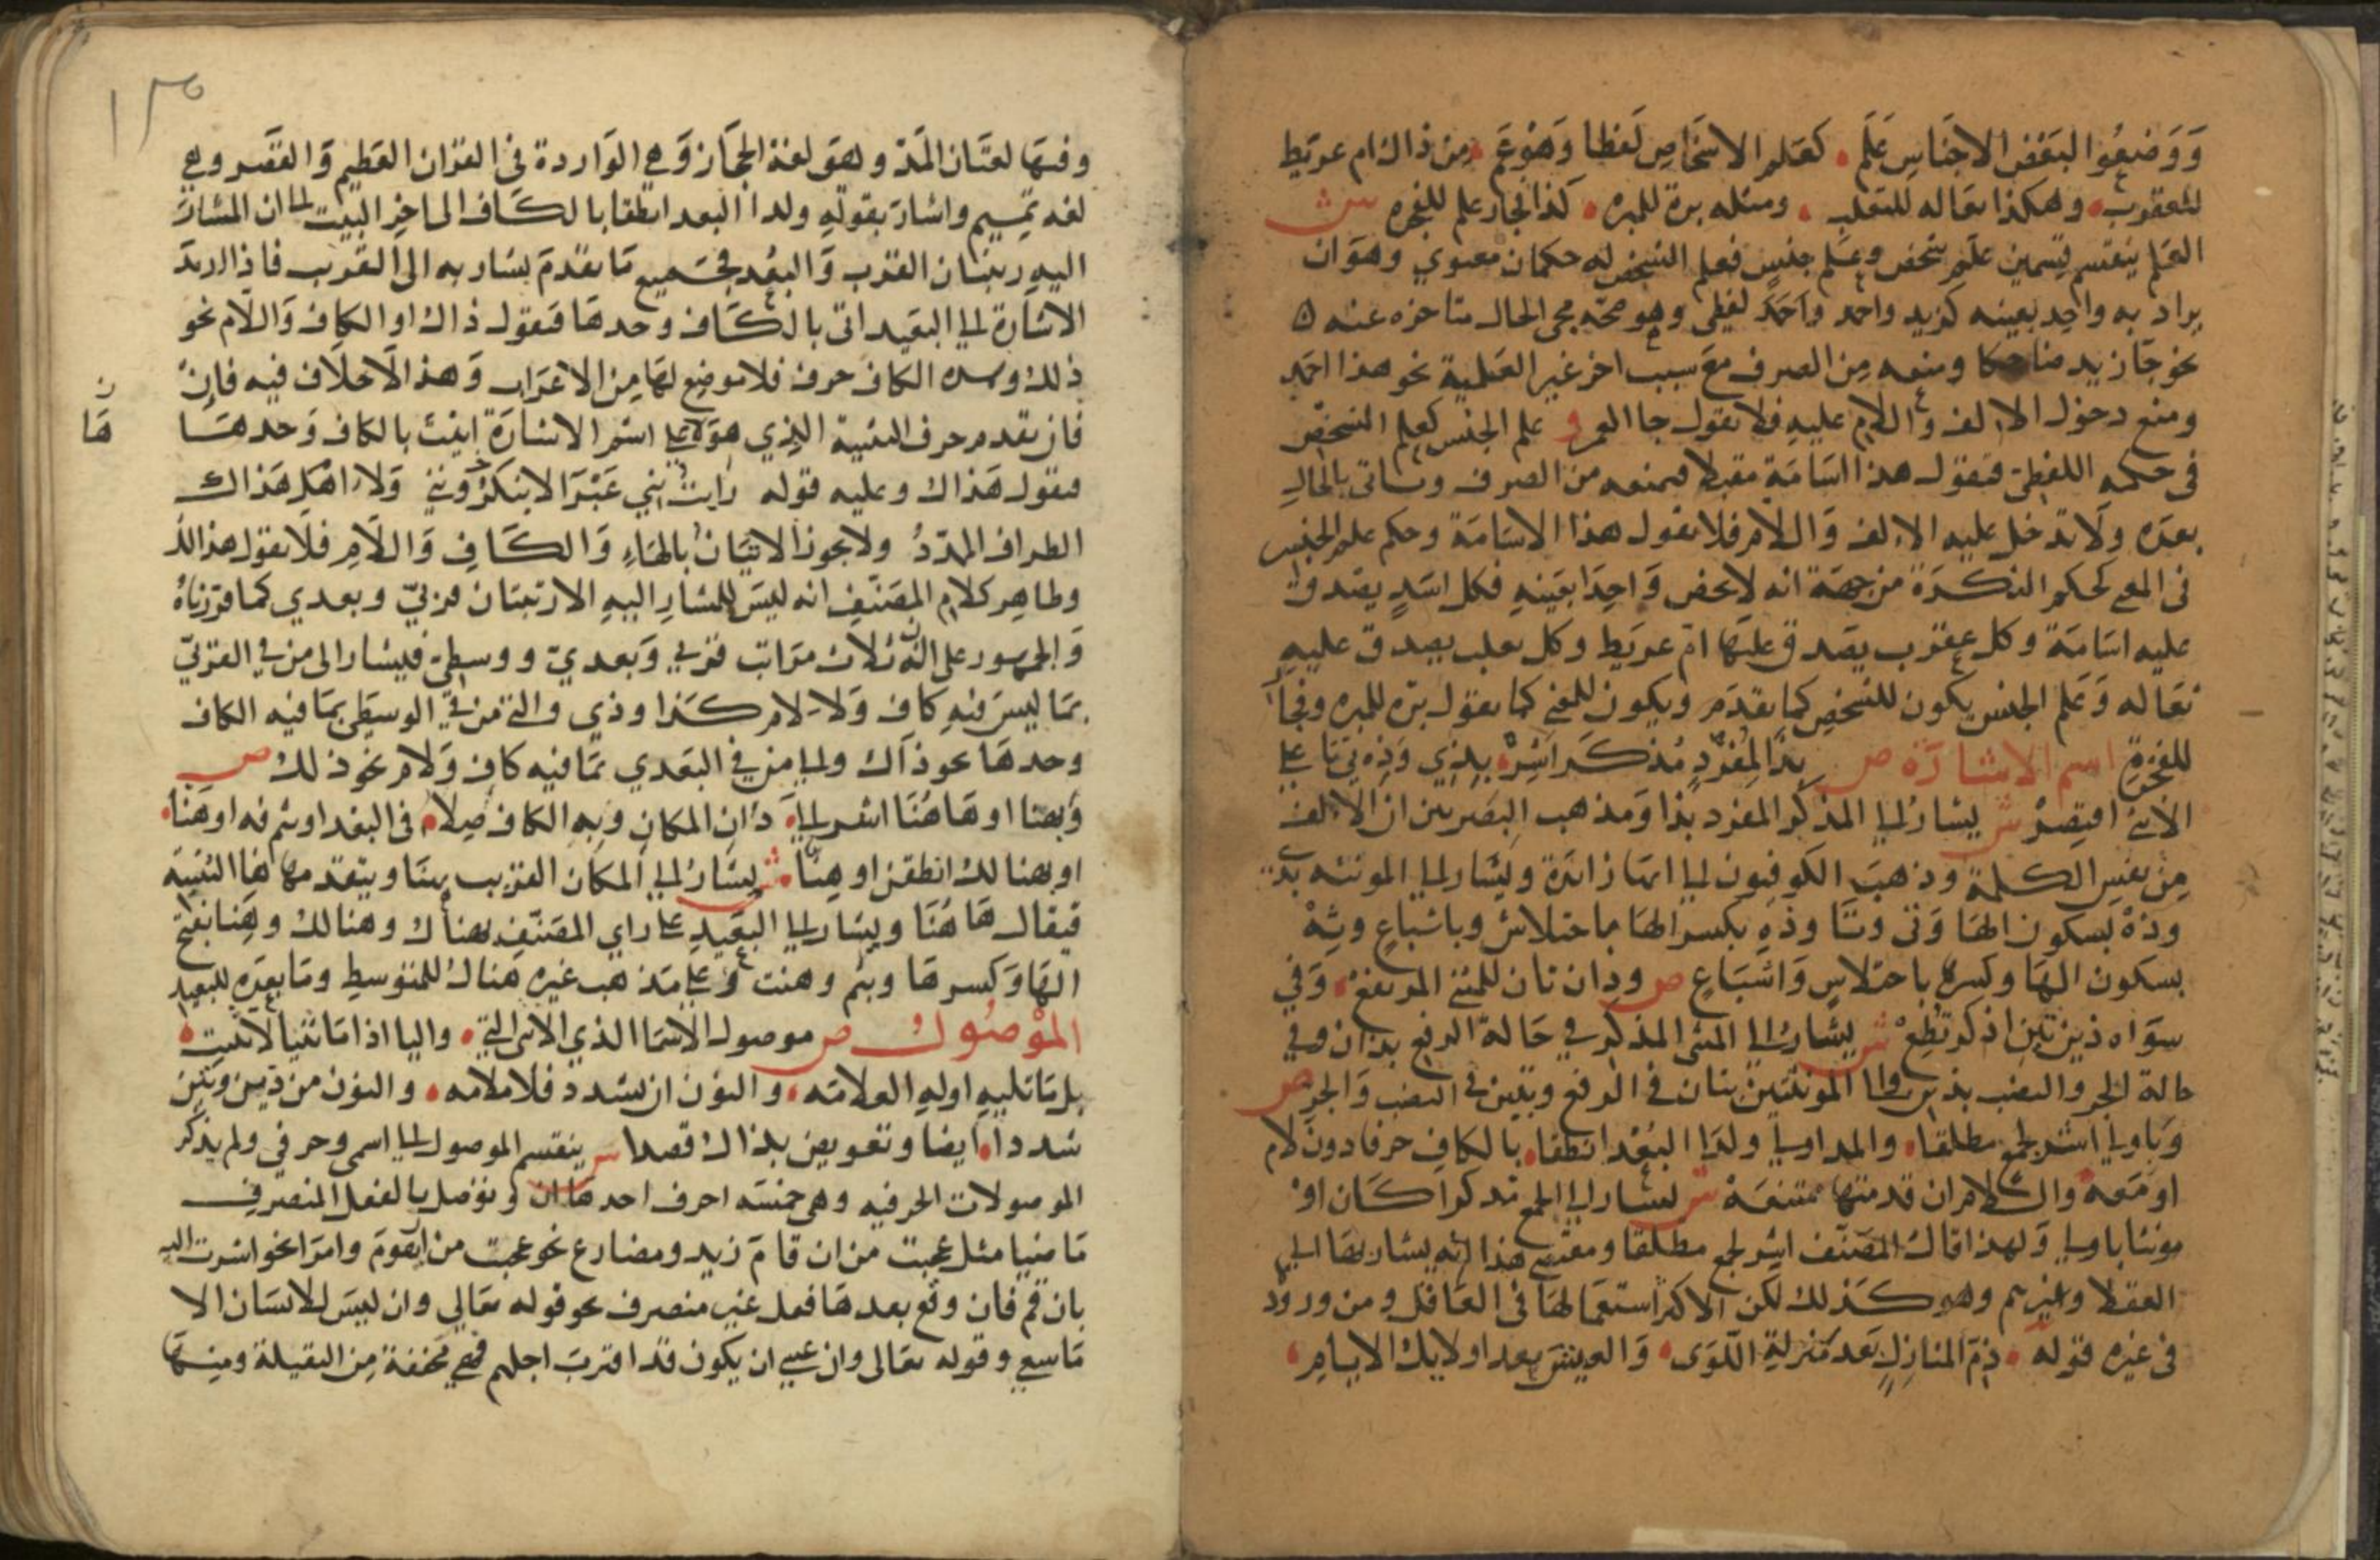 وَوَضَعُوا لبَعْض الاجنَاسِ عَلَم كعَلم الاشخَاصِ لَفظا وَهْوَ عَم مِن ذاك ام عريَط
للعقرب وهكذا ثعاله للثعلب ومثله برة للمبره كذا فجار علم للفجره ش
العَلم ينقسم قِسمين علم شخص وعَلم جنسٍ فعلم الشخص له حكمان معنوي وهوَ ان
يراد به واحد بعينه كزيد واحمد واَحمَد لفظي وهو صحة مجى الحال متاخره عنه
نحو جَا زيد ضاحكا ومنعه مِن الصرف معَ سبب اخر غير العَلمية نحو هذا احمد
ومنع دخول الالف وَاللام عليهِ فلا تقول جا العمرو علم الجنس كعلم الشخص
فى حكمه اللفظى فتقول هذا اسَامَة مقبلا فتمنعه من الصرف وتاتى بالحالِ
بعدَه ولَا تدخل عليه الالف وَاللام فلا تقول هذا الاسَامَة وحكم علم الجنس
فى المعنى كحكم النكرَة من جهَة انه لا يخص وَاحِدَا بعَينهِ فكل اسَدٍ يصَدق
عليه اسَامَة وكل عقرَب يصَدق عليهَا ام عريَط وكل ثعلب يصدق عليهِ
ثعَاله وَعَلم الجنس يكون للشخصِ كما تقدَم ويكون للمعنى كما تقول برّه للمبره وفجار
للفجرةِ اسم الاشارَة ص بِذَا لِمُفرَدٍ مُذكَر اَشِرْ بِذِي وَذِه تي تَا على
الاُنثى اقتصِرْ ش يشارُ الى المذكر المفرَد بذا وَمذهب البصَريين ان الالف
مِن نفسِ الكلمة وذهبَ الكوفيون الى انها زائدَة ويشار الى المونثه بذي
وذهْ بسكون الهَا وَتى وتَا وذهِ بكسر الهَا باختلاسٍ وباشباعٍ وتِهْ
بسكون الهَا وكسرها باختلاسٍ وَاشبَاعٍ ص وذان تان للمثنى المرتفعْ وَفي
سوَاه ذين تين اذكر تُطِعْ ش يشار الى المثنى المذكر في حَالة الرفع بذان وفي
حالة الجر والنصَب بذين والى المونثتين بتان فى الرفع وبتين فى النصَب وَالجر ص
وَباولى اشر لجمع مطلقا والمد اولى ولدَا البُعْد انطقا بالكاف حرفا دون لام
او مَعَه واللام ان قدمتَ ها ممتنعَة ش يشار الى الجمع مذكرا كَان اوْ
مونثا باولى وَلهذا قال المصَنف اشر لجمع مطلقا ومقتضى هذا انه يشار بهَا الى
العقلا وغيرهم وهو كَذلك لكن الاكثر استعمالهَا فى العَاقل ومن ورود
فى غيره قوله ذمّ المنازلَ بَعد مَنزلةِ اللّوَى وَالعيشَ بعد اولايك الايامِ
١٢٥
وفيهَا لغتَان المَدّ وهوَ لغة الحجَاز وَهى الوَاردة فى القران العَظيم وَالقَصر وهى
لغه تَميم واشارَ بقولهِ ولدا البعد انطقا بالكَاف الى اخِر البيت الى ان المشارَ
اليه رتبتان القرب وَالبُعد فجَميع مَا تقدمَ يشار به الى القريب فاذا اريدَ
الاشارة الى البعَيد اتى بالكَاف وحدهَا فتقول ذاك او الكاف وَاللام نحو
ذلك وهذه الكاف حرف فلا موضِع لهَا مِن الاعرَاب وَهذا لا خلَاف فيه فاِنْ
فان تقدم حرف التنبيه الذِي هوَ هَا على اسمِ الاشارَة اتيت بالكاف وَحدهَا
فتقول هَذاك وعليه قوله رَايتُ بَني غَبْرَا لا يُنكرُونني وَلَا اهْل هَذاك
الطرافِ الممَدّدُ ولا يجوز الاتيَان بالهَاءِ وَالكَافِ وَاللَّامِ فلا تقول هذالك
وظاهِر كلام المصَنّفِ انه ليسَ للمشارِ اليهِ الا رتبَتان قربىّ وبعدي كما قررنَاهُ
وَالجمهور على ان له ثلاث مَرَاتب قربي وَبُعدي ووسطى فيشار الى من في القربىّ
بمَا ليسَ فيهِ كاف وَلَا لام كَذا وذي والى من في الوسطى بمَا فيه الكاف
وحدهَا نحو ذَاك والى من في البعَدي بمَا فيه كاف وَلَام نحو ذلك ص
وَبهنا او هَا هُنَا اشر الى دَاني المكان وبِهِ الكاف صِلا فى البعْد او بثم فه او هَنا
او بهنالك انطقن او هِنّا ش يشار الى المكان القرِيب بهنَا ويتقدمها هَا التنبيه
فيقال هَا هُنَا ويشار الى البعَيدِ على راي المصَنّفِ بهناك وهنالك وهَنا بفتح
الهَا وَكسرهَا وبثم وهنت وَعلى مَذهب غيره هَناك للمتوسطِ ومَا بعدَه للبعيد
المَوْصُول ص موصول الاسمَا الذي الانثى التي واليا اذا مَا ثنيا لا تثبت
بل مَا تليهِ اولهِ العلامَه والنون ان تشدد فلا ملامه والنون من ذين وتين
شددا ايضا وتعويض بذاك قصدا ش ينقسم الموصول الى اسمى وحرفي ولم يذكر
الموصولات الحرفيه وهى خمسَه احرف احدهَا ان وتوصل بالفعل المنصرفِ
مَاضيا مثل عجبت من ان قامَ زيد ومضارع نحو عجبت من ان يقومَ وامرَا نحو اشرت اليه
بان قم فان وقع بعدهَا فعل غير منصرف نحو قوله تعَالى وان ليسَ للانسَان الا
مَا سعى وقوله تعَالى وان عسى ان يكون قد اقتربَ اجلهم فهي مخففة مِن الثقيلة ومنهَا
ن
هَا